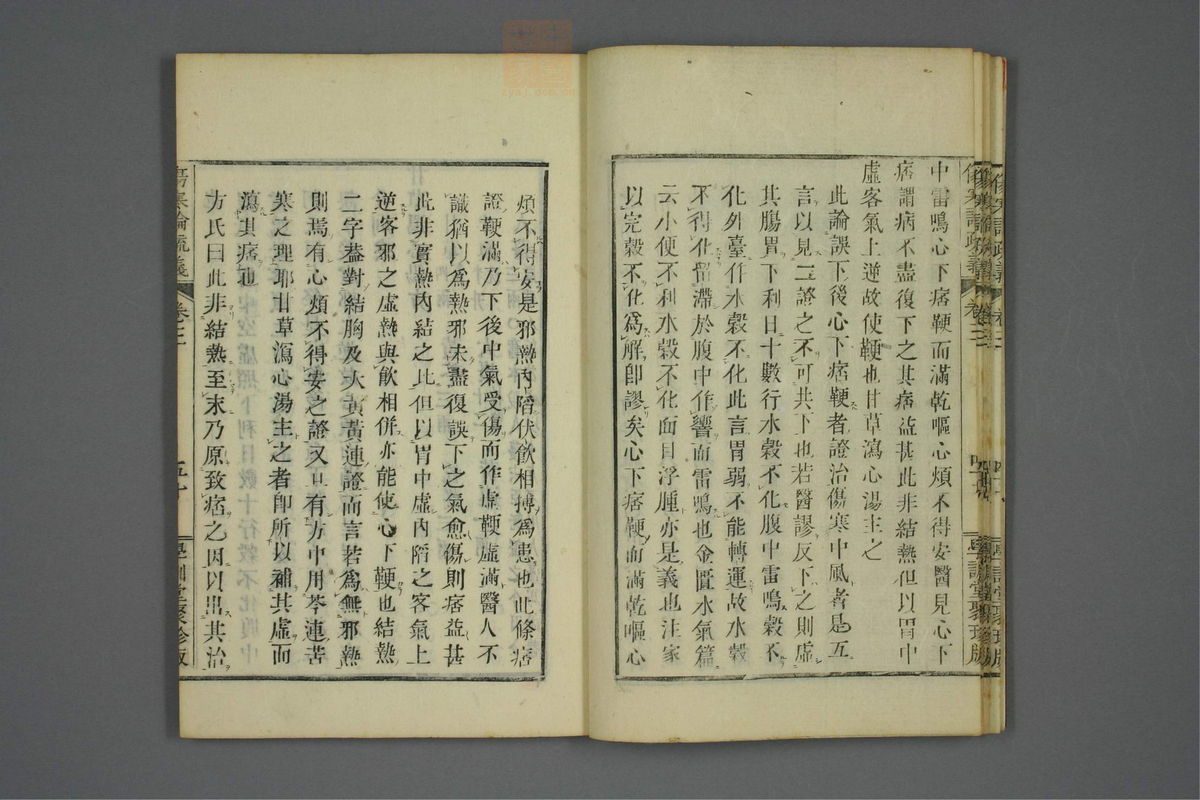 中雷鳴心下痞鞕而滿乾嘔心煩不得安醫見心下
痞謂病不盡復下之其痞益甚此非結熱但以胃中
虛客氣上逆故使鞕也甘草瀉心湯主之
此論誤下後心下痞鞕者證治傷寒中風者是互
言以見二證之不可共下也若醫謬反下之則虛
其腸胃下利日十數行水穀不化腹中雷鳴穀不
化外臺作水穀不化此言胃弱不能轉運故水穀
不得化留滯於腹中作響而雷鳴也金匱水氣篇
云小便不利水穀不化面目浮腫亦是義也注家
以完穀不化爲解卽謬矣心下痞鞕而滿乾嘔心
煩不得安是邪熱內陷伏飲相搏爲患也此條痞
證鞕滿乃下後中氣受傷而作虛鞕虛滿醫人不
識猶以爲熱邪未盡復誤下之氣愈傷則痞益甚
此非實熱內結之此但以胃中虛內陷之客氣上
逆客邪之虛熱與飲相併亦能使心下鞕也結熱
二字葢對結胸及大黃黃連證而言若爲無邪熱
則焉有心煩不得安之證又且有方中用芩連苦
寒之理耶甘草瀉心湯主之者卽所以補其虛而
瀉其痞也
方氏曰此非結熱至末乃原致痞之因以出其治
傷寒論疏義
卷三
五十
學訓堂聚珍版